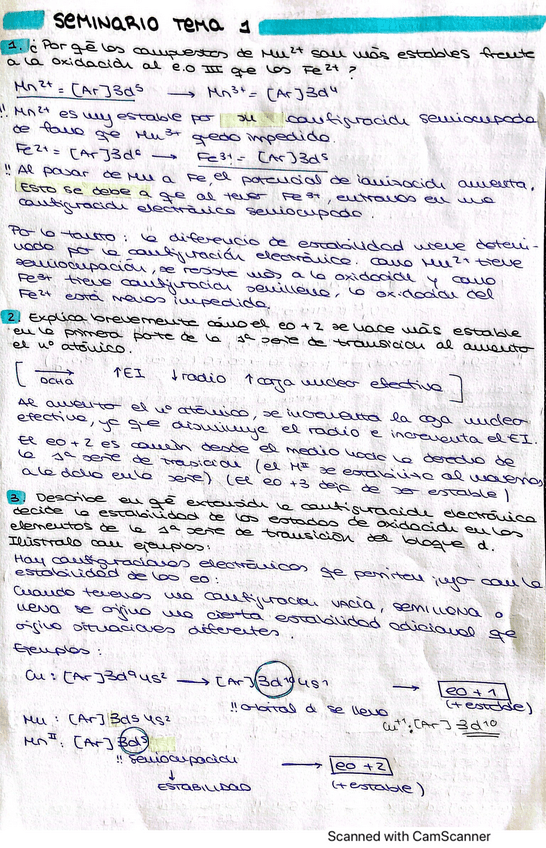 SEMINARIO TEMA 1
1. ¿Por qé los compuestos de Mn²⁺ son más estables frente
a la oxidación al e.o III qe los Fe²⁺?
Mn²⁺ = [Ar]3d⁵ → Mn³⁺ = [Ar]3d⁴
!! Mn²⁺ es muy estable por su configuración semiocupada
de forma qe Mn³⁺ queda impedido.
Fe²⁺ = [Ar]3d⁶ → Fe³⁺ = [Ar]3d⁵
!! Al pasar de Mn a Fe, el potencial de ionización aumenta.
Esto se debe a qe al tener Fe³⁺, entramos en una
configuración electrónica semiocupada.
Por lo tanto: la diferencia de estabilidad viene determi-
nada por la configuración electrónica. Como Mn²⁺ tiene
semiocupación, se resiste más a la oxidación y como
Fe³⁺ tiene configuración semillena, la oxidación del
Fe²⁺ está menos impedida.
2. Explica brevemente cómo el eo +2 se hace más estable
en la primera parte de la 1ª serie de transición al aumento
el nº atómico.
[ → dcha ↑EI ↓radio ↑carga nuclear efectiva ]
Al aumentar el nº atómico, se incrementa la carga nuclear
efectiva, ya qe disminuye el radio e incrementa el EI.
El eo +2 es común desde el medio hacia la derecha de
la 1ª serie de transición (el Mᴵᴵ se estabiliza al movernos
a la dcha en la serie) (el eo +3 deja de ser estable)
3. Describe en qé extensión la configuración electrónica
decide la estabilidad de los estados de oxidación en los
elementos de la 1ª serie de transición del bloque d.
Ilústralo con ejemplos:
Hay configuraciones electrónicas qe permiten jugar con la
estabilidad de los eo:
Cuando tenemos una configuración vacía, semillena o
llena se origina una cierta estabilidad adicional qe
origina situaciones diferentes.
Ejemplos:
Cu: [Ar]3d⁹4s² → [Ar]3d¹⁰4s¹ → eo +1
!! orbital d se llena (+estable)
Cu⁺¹: [Ar]3d¹⁰
Mn: [Ar]3d⁵4s²
Mnᴵᴵ: [Ar]3d⁵
!! semiocupación → eo +2
↓
ESTABILIDAD (+estable)
Scanned with CamScanner